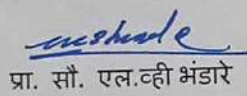 प्रा. सौ. एल.व्ही भंडारे